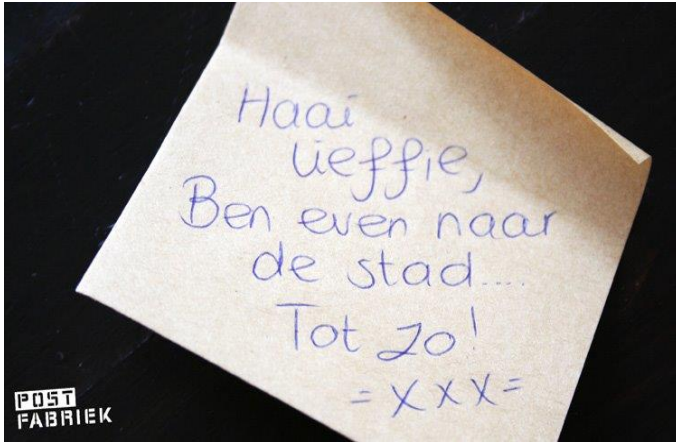 Haai
lieffie,
Ben even naar
de stad....
Tot zo!
=xxx=
POST
FABRIEK